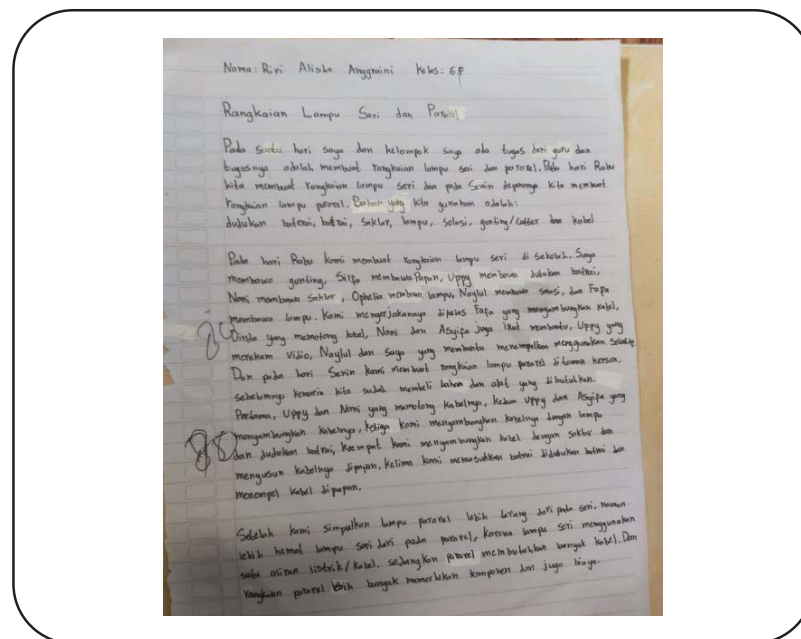 Nama: Riri Aliska Anggraini Kelas: 6F
Rangkaian Lampu Seri dan Pararel
Pada suatu hari saya dan kelompok saya ada tugas dari guru dan
tugasnya adalah membuat rangkaian lampu seri dan pararel. Pada hari Rabu
kita membuat rangkaian lampu seri dan pada Senin depannya kita membuat
rangkaian lampu pararel. Bahan yang kita gunakan adalah:
dudukan baterai, batrai, saklar, lampu, solasi, gunting/cutter dan kabel
Pada hari Rabu kami membuat rangkaian lampu seri di sekolah. Saya
membawa gunting, Silfa membawa Papan, Uppy membawa dudukan batrai,
Nami membawa saklar, Ophelia membawa lampu, Naylul membawa dan Fafa
membawa lampu. Kami mengerjakannya dikelas Fafa yang menyambungkan kabel,
Dinda yang memotong kabel, Nami dan Asyifa juga ikut membantu, Uppy yang
merekam Vidio, Naylul dan saya yang membantu menempelkan menggunakan
Dan pada hari Senin kami membuat rangkaian lampu pararel ditaman kersen.
sebelumnya kemarin kita sudah membeli bahan dan alat yang dibutuhkan.
Pertama, Uppy dan Nami yang memotong kabelnya, kedua Uppy dan Asyifa yang
menyambungkan kabelnya, ketiga kami menyambungkan kabelnya dengan lampu
88 dan dudukan batrai, keempat kami menyambungkan kabel dengan saklar dan
menyusun kabelnya dipapan, kelima kami memasukkan batrai didudukan batrai dan
menempel kabel dipapan.
Setelah kami simpulkan lampu pararel lebih terang dari pada seri, namun
lebih hemat lampu seri dari pada pararel, karena lampu seri menggunakan
satu aliran listrik/kabel. sedangkan pararel membutuhkan banyak kabel. Dan
rangkaian pararel lebih banyak memerlukan komponen dan juga biaya.